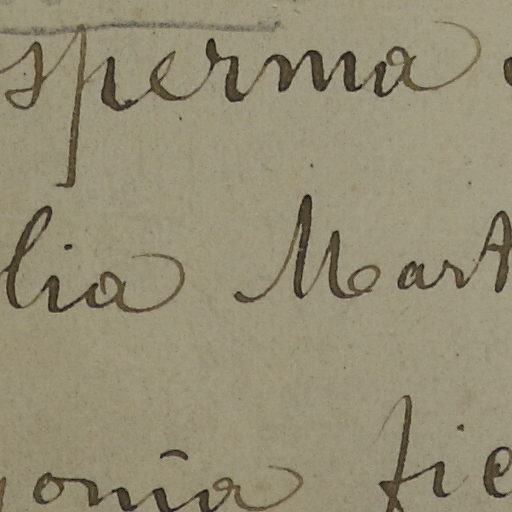 sperma
lia Mart
gonia fie